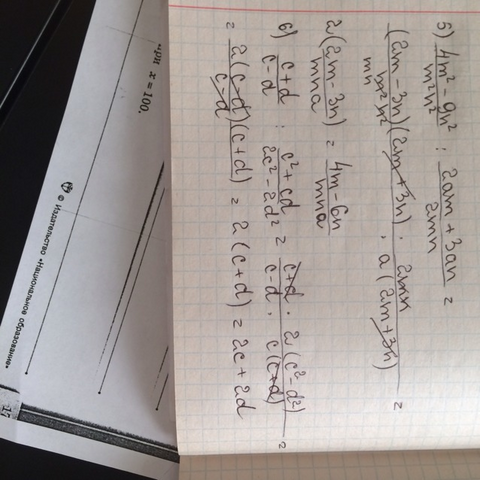 5) (4m² - 9n²)/(m²n²) : (2am + 3an)/(2mn) =
((2m - 3n)(2m + 3n) · 2mn)/(m²n² · a(2m + 3n)) =
mn
2(2m - 3n)/mna = (4m - 6n)/mna
6) (c+d)/(c-d) : (c² + cd)/(2c² - 2d²) = (c+d · 2(c² - d²))/(c-d · c(c+d)) =
= (2(c-d)(c+d))/(c-d) = 2(c+d) = 2c + 2d
при x = 100.
© Издательство «Национальное образование»
17